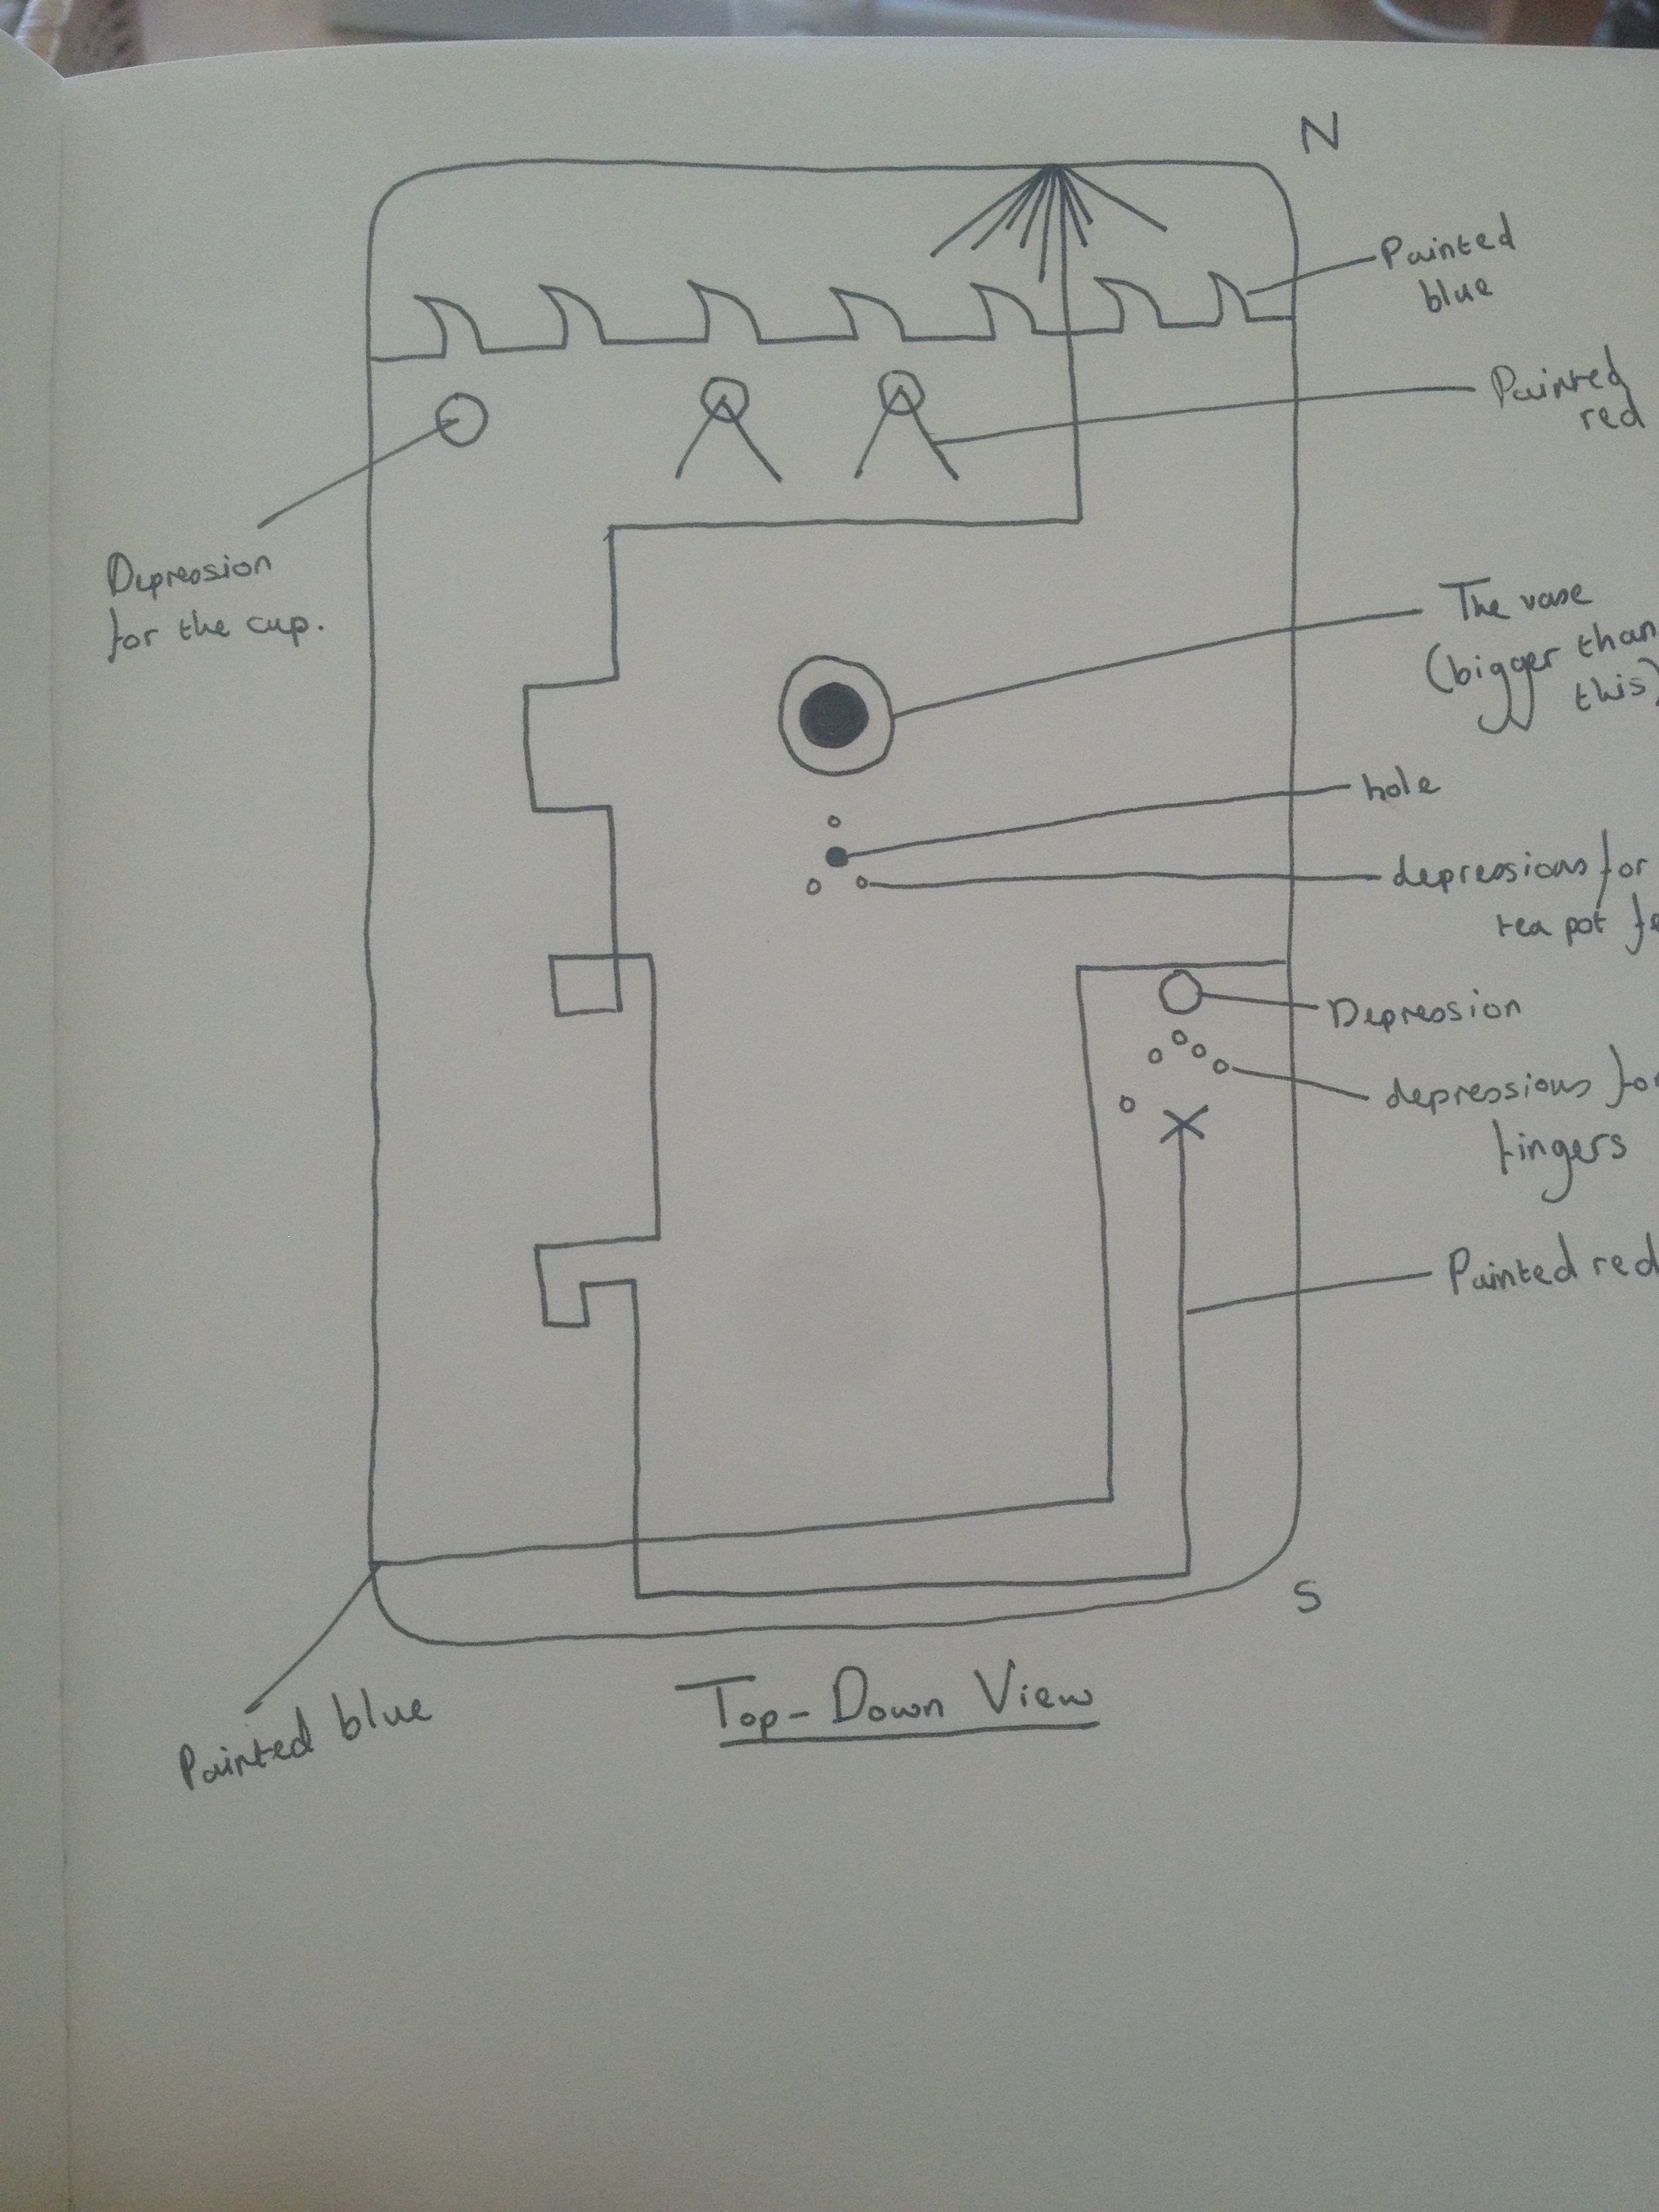 N
Painted
blue
Painted
red
Depression
for the cup.
The vase
(bigger than
this)
hole
depressions for
tea pot fe
Depression
depressions for
fingers
Painted red
S
Top-Down View
Painted blue